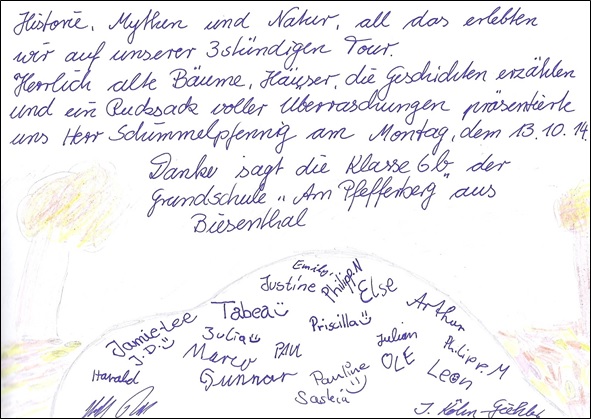 Historie, Mythen und Natur, all das erlebten
wir auf unserer 3stündigen Tour.
Herrlich alte Bäume, Häuser, die Geschichten erzählen
und ein Rucksack voller Überraschungen präsentierte
uns Herr Schimmelpfennig am Montag, dem 13.10.14.
Danke sagt die Klasse 6b der
Grundschule "Am Pfefferberg" aus
Biesenthal
Emily,
Justine Philipp.N Else
Jamie-Lee Tabea Arthur
J.D. Julia Priscilla Julian Philipp.M
Marco PAUL OLE
Harald Gunnar Pauline Leon
Saskia